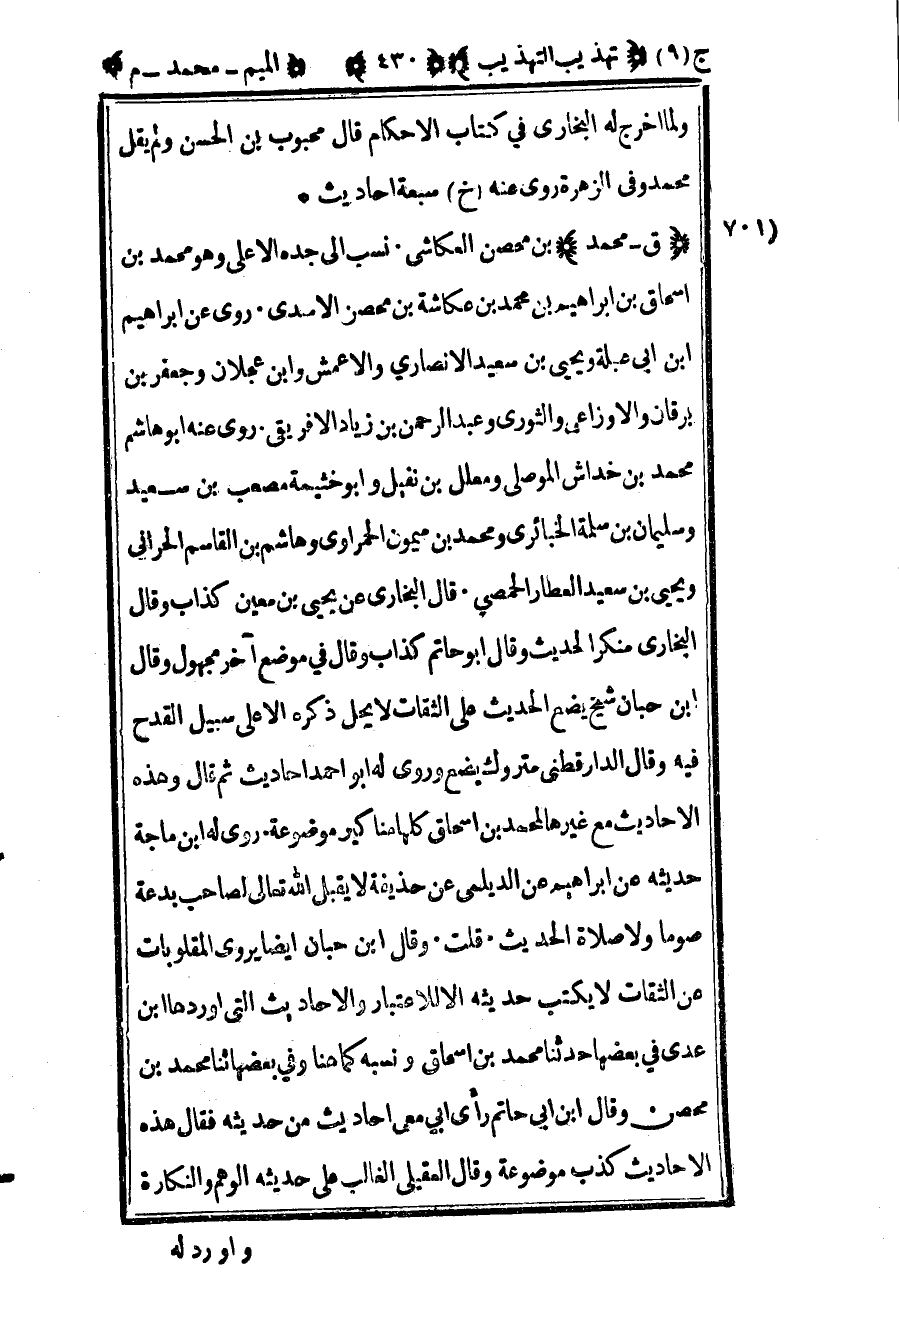 ج(٩) ﴿ تهذيب التهذيب ﴾ ﴿ ٤٣٠ ﴾ ﴿ الميم ـ محمد ـ م ﴾
ولما اخرج له البخارى في كتاب الاحكام قال محبوب بن الحسن ولم يقل
محمد وفى الزهرة روى عنه (خ) سبعة احاديث •
(٧٠١
﴿ ق ـ محمد ﴾ بن محصن العكاشي · نسب الى جده الاعلى وهو محمد بن
اسحاق بن ابراهيم بن محمد بن عكاشة بن محصن الاسدى · روى عن ابراهيم
ابن ابى عبلة ويحيى بن سعيد الانصاري والاعمش وابن عجلان وجعفر بن
برقان والاوزاعى والثورى وعبد الرحمن بن زياد الافريقى · روى عنه ابو هاشم
محمد بن خداش الموصلى ومعلل بن نفيل و ابو خثيمة مصعب بن سعيد
وسليمان بن سلمة الخبائرى ومحمد بن ميمون الحمراوى وهاشم بن القاسم الحرانى
ويحيى بن سعيد العطار الحمصي · قال البخارى عن يحيى بن معين كذاب وقال
البخارى منكر الحديث وقال ابو حاتم كذاب وقال في موضع آخر مجهول وقال
ابن حبان شيخ يضع الحديث على الثقات لا يحل ذكره الا على سبيل القدح
فيه وقال الدارقطنى متروك يضع وروى له ابو احمد احاديث ثم قال وهذه
الاحاديث مع غيرها لمحمد بن اسحاق كلها مناكير موضوعة · روى له ابن ماجة
حديثه عن ابراهيم عن الديلمى عن حذيفة لا يقبل الله تعالى لصاحب بدعة
صوما ولا صلاة الحديث · قلت · وقال ابن حبان ايضا يروى المقلوبات
عن الثقات لا يكتب حديثه الا للاعتبار والاحاديث التى اوردها ابن
عدى في بعضها حدثنا محمد بن اسحاق و نسبه كما هنا وفي بعضها ثنا محمد بن
محصن · وقال ابن ابي حاتم رأى ابي معى احاديث من حديثه فقال هذه
الاحاديث كذب موضوعة وقال العقيلى الغالب على حديثه الوهم والنكارة
و او رد له